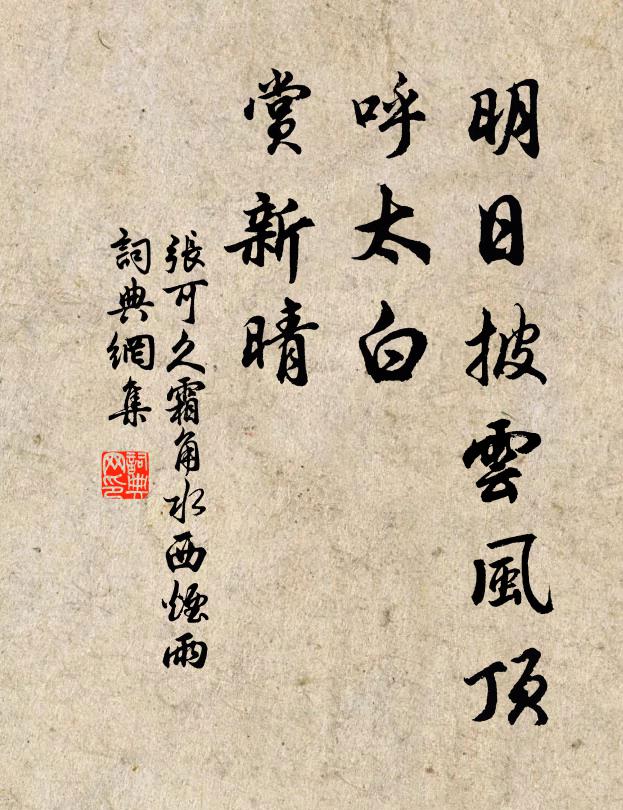 明日披雲風頂
呼太白
賞新晴
張可久霜角水西煙雨
詞典網集
詞典网印